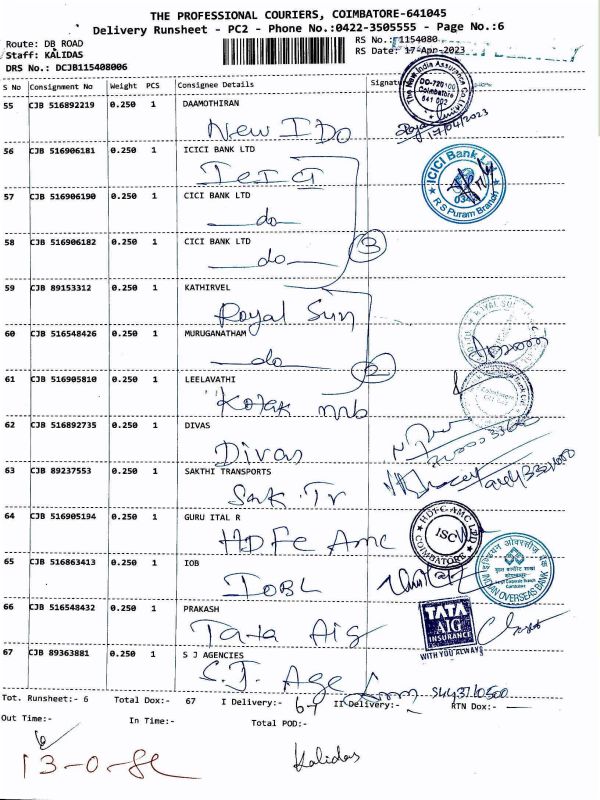 THE PROFESSIONAL COURIERS, COIMBATORE-641045
Delivery Runsheet - PC2 - Phone No.:0422-3505555 - Page No.:6
Route: DB ROAD
RS No.: 1154080
Staff: KALIDAS
RS Date: 17-Apr-2023
DRS No.: DCJB115408006
S No Consignment No Weight PCS Consignee Details Signatu
The New India Assurance Co. Limited
DO-720100
Coimbatore
641 002
55 CJB 516892219 0.250 1 DAAMOTHIRAN
New IDo
17/04/2023
56 CJB 516906181 0.250 1 ICICI BANK LTD
ICICI
ICICI Bank Ltd
R S Puram Branch
57 CJB 516906190 0.250 1 CICI BANK LTD
do
58 CJB 516906182 0.250 1 CICI BANK LTD
do
3
59 CJB 89153312 0.250 1 KATHIRVEL
Royal Sun
60 CJB 516548426 0.250 1 MURUGANATHAM
do
2
61 CJB 516905810 0.250 1 LEELAVATHI
Kotak mnb
62 CJB 516892735 0.250 1 DIVAS
Divas
63 CJB 89237553 0.250 1 SAKTHI TRANSPORTS
Sak Tr
64 CJB 516905194 0.250 1 GURU ITAL R
HDFC Amc
HDFC AMC LTD
ISC
COIMBATORE
65 CJB 516863413 0.250 1 IOB
IOBL
इण्डियन ओवरसीज़ बैंक
INDIAN OVERSEAS BANK
66 CJB 516548432 0.250 1 PRAKASH
Tata Aig
TATA
AIG
INSURANCE
WITH YOU ALWAYS
67 CJB 89363881 0.250 1 S J AGENCIES
S.J. Age
9443710500
Tot. Runsheet:- 6 Total Dox:- 67 I Delivery:- 67 II Delivery:- RTN Dox:-
Out Time:- In Time:- Total POD:-
Kalidas